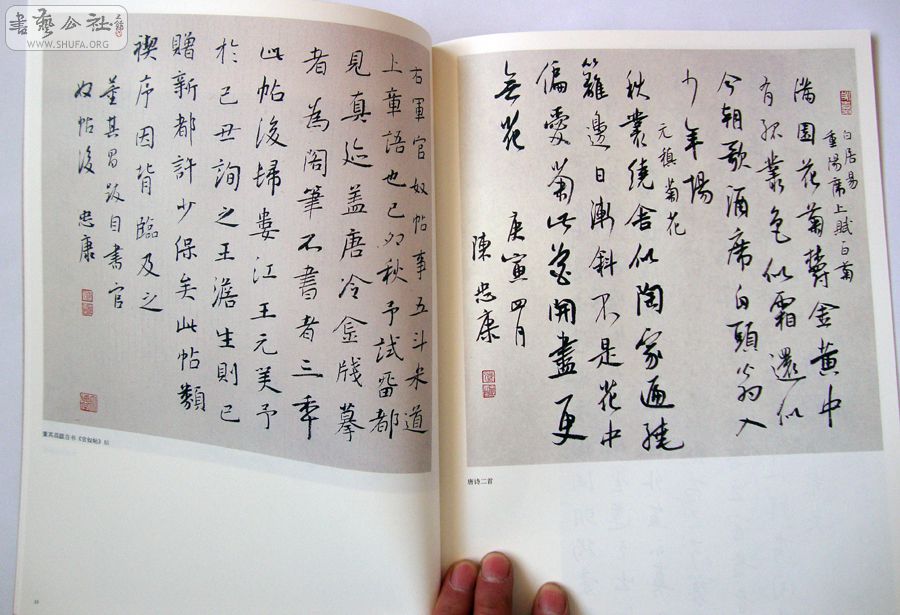 書藝公社
www.SHUFA.ORG
右軍官奴帖事五斗米道
上章語也己卯秋予試留都
見真跡蓋唐冷金牋摹
者為閣筆不書者三年
此帖後歸婁江王元美予
於己丑詢之王澹生則已
贈新都許少保矣此帖類
禊序因背臨及之
董其昌跋自書官
奴帖後 忠康
董其昌跋自书《官奴帖》后
白居易
重陽席上賦白菊
滿園花菊鬱金黃中
有孤叢色似霜還似
今朝歌酒席白頭翁入
少年場
元稹菊花
秋叢繞舍似陶家遍繞
籬邊日漸斜不是花中
偏愛菊此花開盡更
無花
庚寅四月
陳忠康
唐诗二首